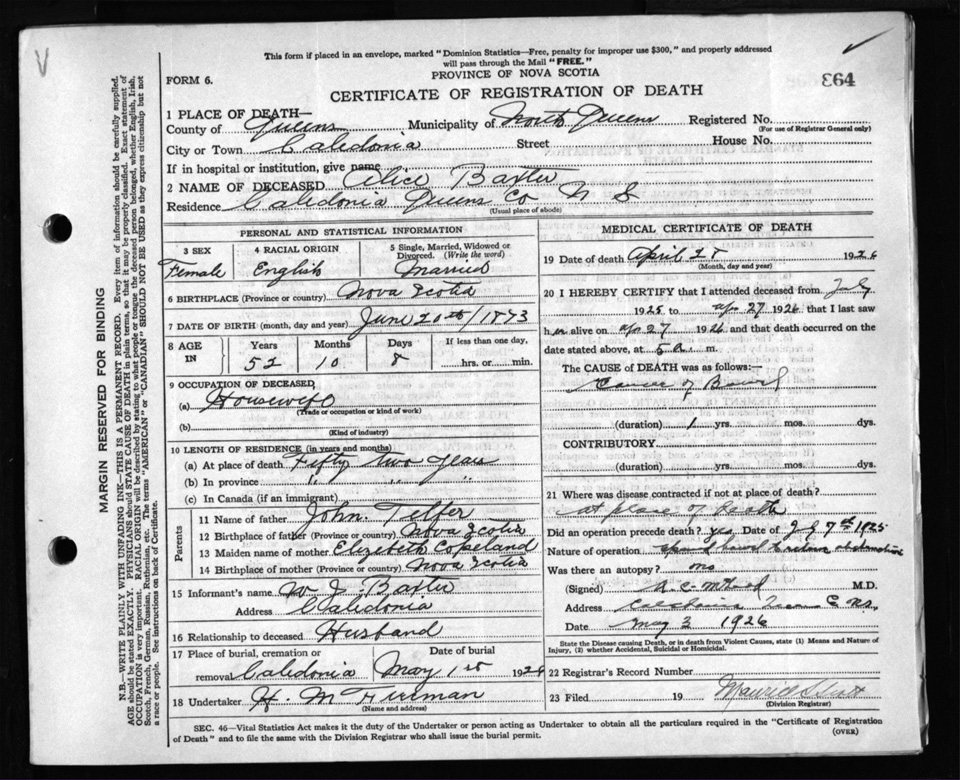 This form if placed in an envelope, marked "Dominion Statistics—Free, penalty for improper use $300," and properly addressed
will pass through the Mail "FREE."
FORM 6.
PROVINCE OF NOVA SCOTIA
864
CERTIFICATE OF REGISTRATION OF DEATH
1 PLACE OF DEATH—
County of Queens Municipality of North Queens Registered No.
(For use of Registrar General only)
City or Town Caledonia Street House No.
If in hospital or institution, give name
2 NAME OF DECEASED Alice Baxter
Residence Calidonia Queens Co N S
(Usual place of abode)
PERSONAL AND STATISTICAL INFORMATION
3 SEX 4 RACIAL ORIGIN 5 Single, Married, Widowed or Divorced. (Write the word)
Female English Married
6 BIRTHPLACE (Province or country) Nova Scotia
7 DATE OF BIRTH (month, day and year) June 20th / 1873
8 AGE IN Years Months Days If less than one day,
52 10 8 hrs. or min.
9 OCCUPATION OF DECEASED
(a) Housewife
(Trade or occupation or kind of work)
(b)
(Kind of industry)
10 LENGTH OF RESIDENCE (in years and months)
(a) At place of death Fifty two years
(b) In province " " "
(c) In Canada (if an immigrant)
Parents
11 Name of father John Telfer
12 Birthplace of father (Province or country) Nova Scotia
13 Maiden name of mother Elizebeth Copeland
14 Birthplace of mother (Province or country) Nova Scotia
15 Informant's name W J Baxter
Address Calidonia
16 Relationship to deceased Husband
17 Place of burial, cremation or removal Calidonia Date of burial May 1st 1926
18 Undertaker H. M Firman
(Name and address)
MEDICAL CERTIFICATE OF DEATH
19 Date of death April 28 1926
(Month, day and year)
20 I HEREBY CERTIFY that I attended deceased from July
1925 to Apr 27 1926 that I last saw
her alive on Apr 27 1926 and that death occurred on
date stated above, at 5 a. m.
The CAUSE of DEATH was as follows:—
Cancer of Bowel
(duration) 1 yrs. mos. dys.
CONTRIBUTORY
(duration) yrs. mos. dys.
21 Where was disease contracted if not at place of death?
at place of death
Did an operation precede death? yes Date of July 7th 1925
Nature of operation
Was there an autopsy? no
(Signed) M.D.
Address Caledonia Queens C N.S.
Date May 3 1926
State the Disease causing Death, or in death from Violent Causes, state (1) Means and Nature of
Injury, (2) whether Accidental, Suicidal or Homicidal.
22 Registrar's Record Number
23 Filed 19 Maurice Scott
(Division Registrar)
SEC. 46—Vital Statistics Act makes it the duty of the Undertaker or person acting as Undertaker to obtain all the particulars required in the "Certificate of Registration
of Death" and to file the same with the Division Registrar who shall issue the burial permit.
(OVER)
MARGIN RESERVED FOR BINDING
N.B.—WRITE PLAINLY WITH UNFADING INK—THIS IS A PERMANENT RECORD. Every item of information should be carefully supplied.
AGE should be stated EXACTLY. PHYSICIANS should STATE CAUSE OF DEATH in plain terms, so that it may be properly classified. Exact statement of
OCCUPATION is very important. RACIAL ORIGIN will be described by stating to what people or tongue the deceased person belonged, whether English, Irish,
Scotch, French, German, Russian, Ruthenian, etc. The terms "AMERICAN" or "CANADIAN" SHOULD NOT BE USED as they express citizenship but not
a race or people. See instructions on back of Certificate.